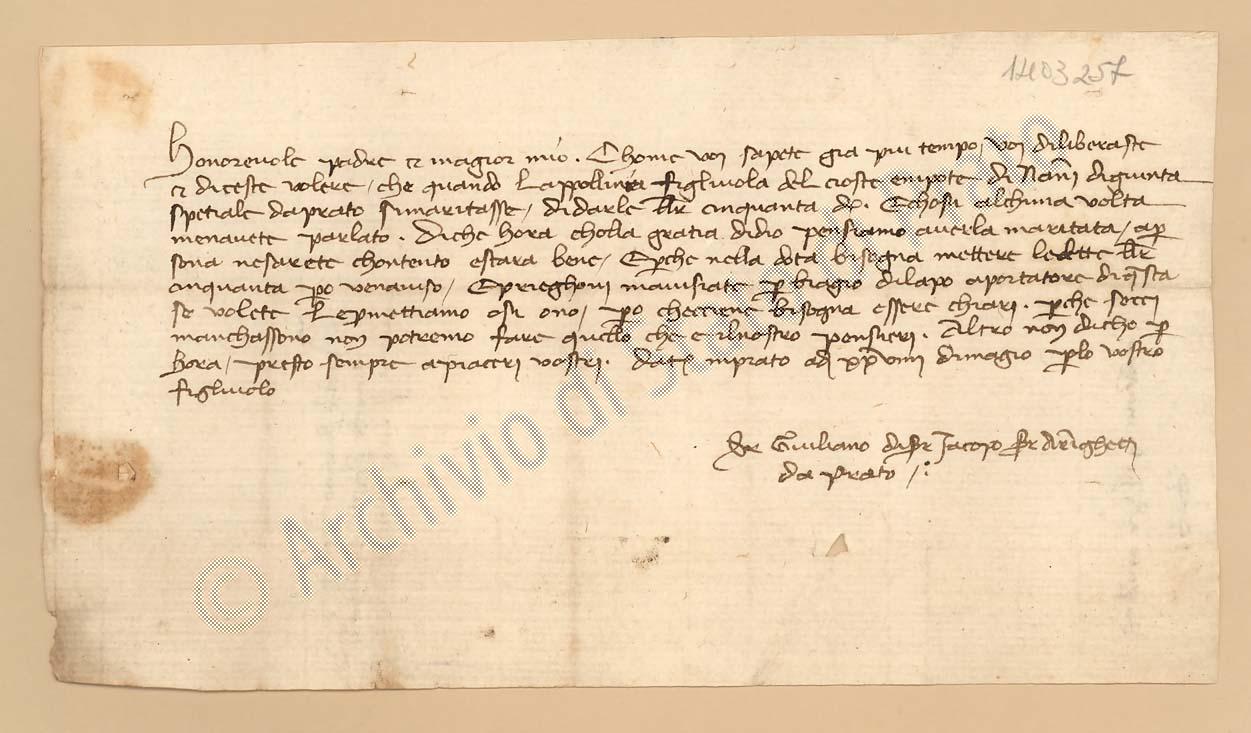 1403257
Honorevole padre et magior mio. Chome voi sapete gia piu tempo, voi diliberaste
et diceste volere, che quando Lappollinia figliuola del cioste enipote di Nanni diquinta
spetiale daprato simaritasse, didarle lbr cinquanta di Echosi alchuna volta
menavete parlato. Diche hora cholla gratia didio pensiamo averla maritata, aper
sona nesarete chontento estara bene, Eperche nella dota bisogna mettere ledette lbr
cinquanta po venaviso, Eprieghovi mavisiate per biagio dilapo aportatore diquesta
se volete lepromettiamo osi ono, po checciene bisogna essere chiari. perche secci
manchassono non potremo fare quello che e ilnostro pensieri. Altro non dicho per
hora, presto sempre apiaceri vostri. Data inprato adi xxviiii dimagio perlo vostro
figliuolo
Ser Giuliano diser Jacopo ser Arrighetti
da prato
© Archivio di Stato di Prato